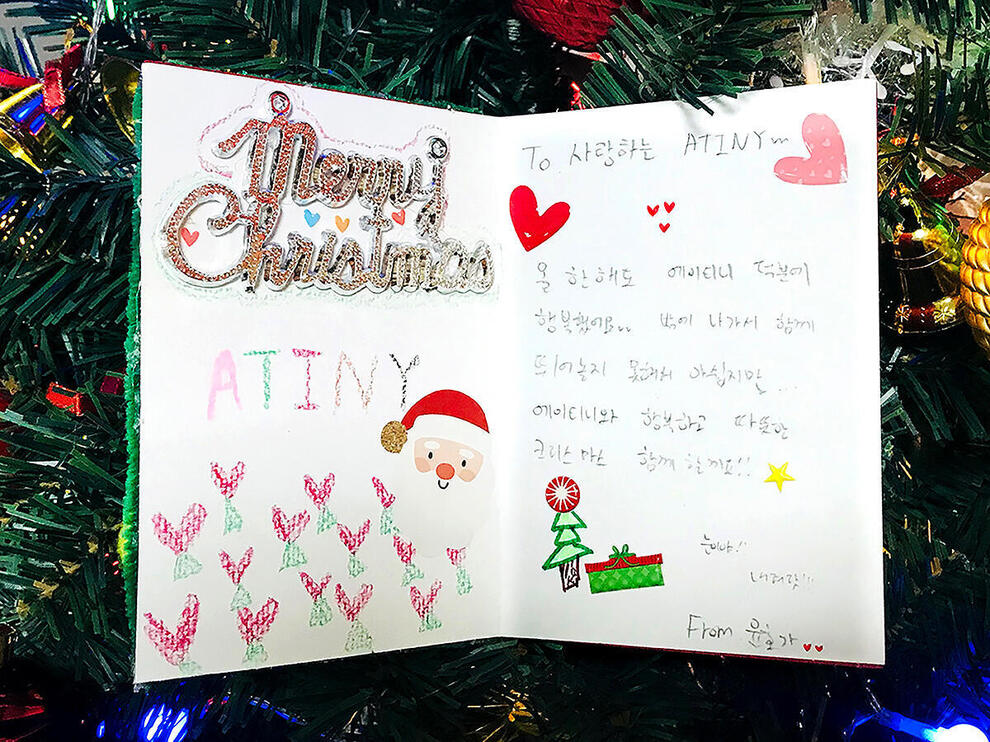 Merry
Christmas
ATINY
To 사랑하는 ATINY~
올 한해도 에이티니 덕분에
행복했어요~ 밖에 나가서 함께
뛰어놀지 못해서 아쉽지만...
에이티니와 행복하고 따뜻한
크리스마스 함께 할게요!!
눈이야!!
내려랏!!
From 윤호가